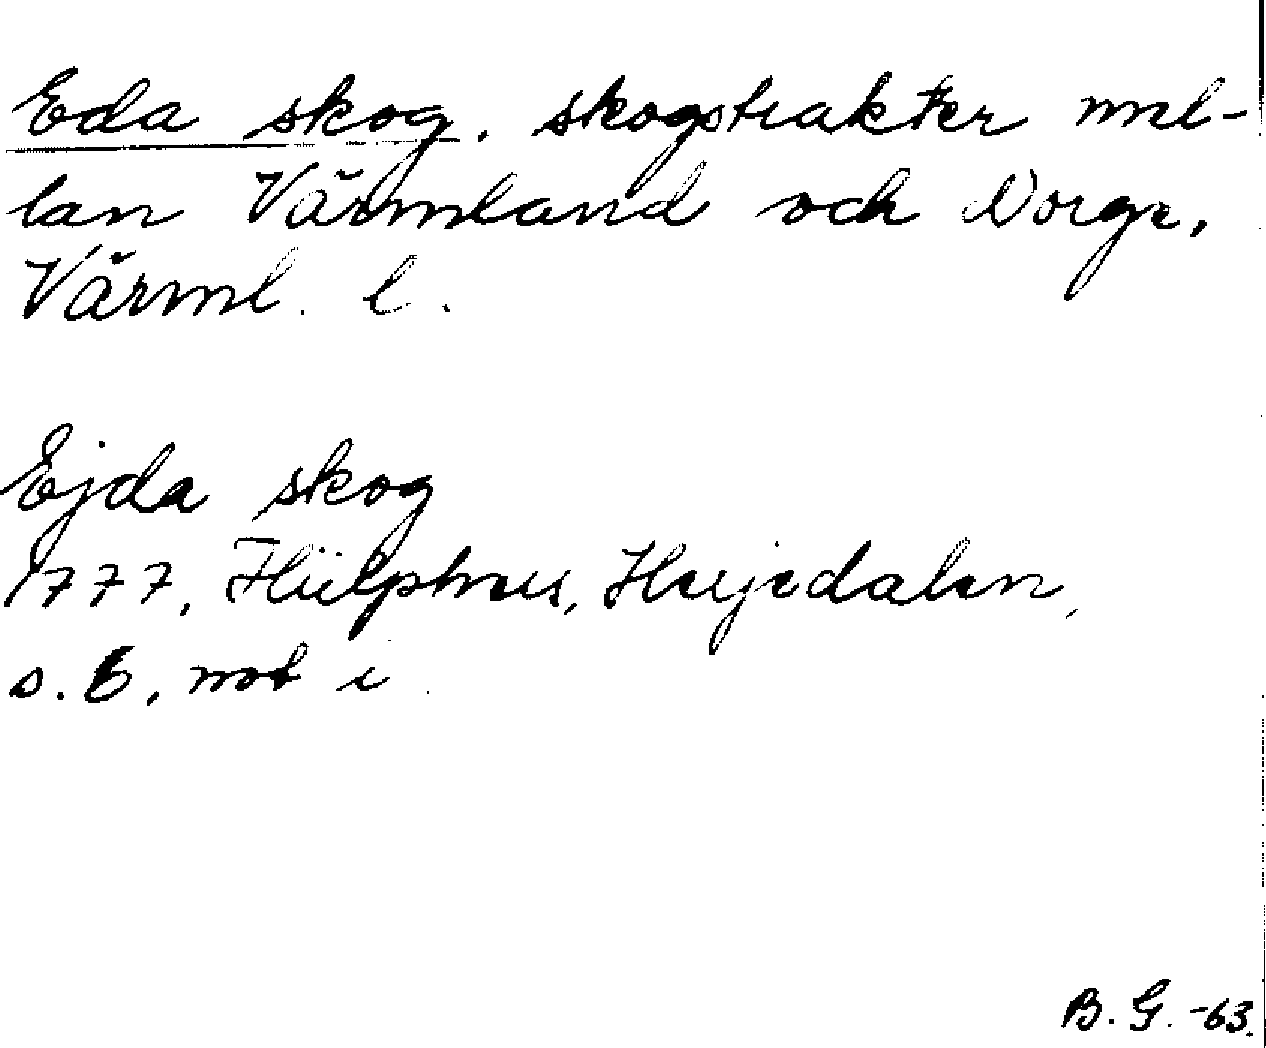 Eda skog. skogstrakter mel-
lan Värmland och Norge,
Värml. l.
Ejda skog
1777, Hülphers, Herjedalen,
s. 6, not i.
B. G. -63.